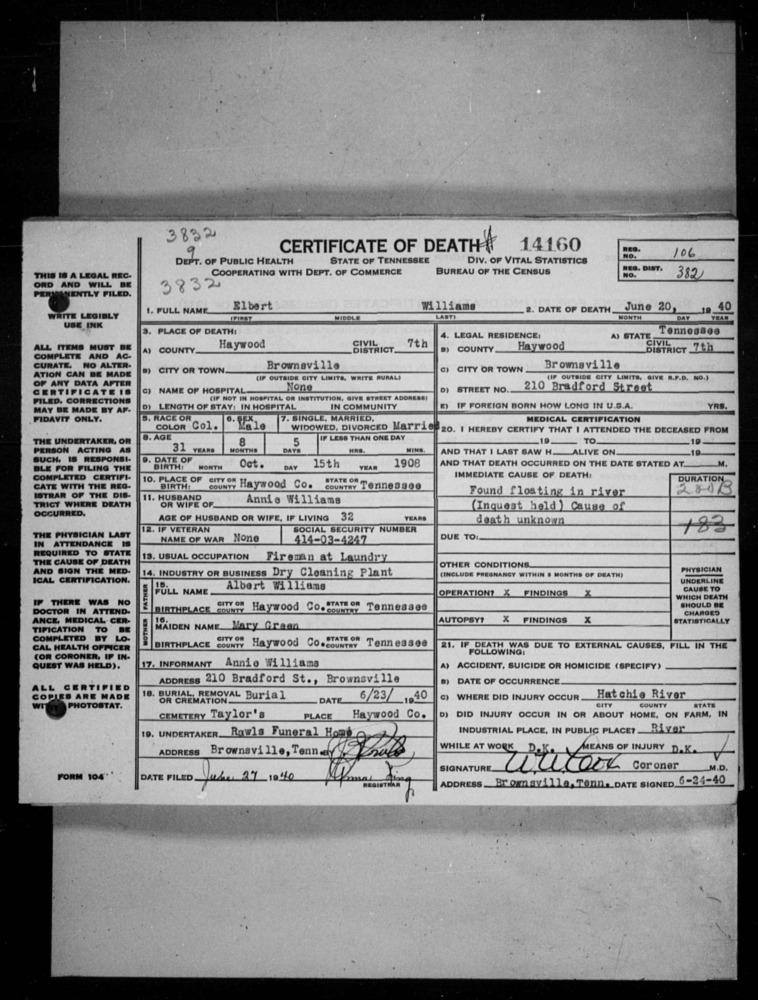 3832
9
3832
CERTIFICATE OF DEATH # 14160
DEPT. OF PUBLIC HEALTH STATE OF TENNESSEE DIV. OF VITAL STATISTICS
COOPERATING WITH DEPT. OF COMMERCE BUREAU OF THE CENSUS
REG. NO. 106
REG. DIST. NO. 382
THIS IS A LEGAL REC-
ORD AND WILL BE
PERMANENTLY FILED.
WRITE LEGIBLY
USE INK
ALL ITEMS MUST BE
COMPLETE AND AC-
CURATE. NO ALTER-
ATION CAN BE MADE
OF ANY DATA AFTER
CERTIFICATE IS
FILED. CORRECTIONS
MAY BE MADE BY AF-
FIDAVIT ONLY.
THE UNDERTAKER, OR
PERSON ACTING AS
SUCH, IS RESPONSI-
BLE FOR FILING THE
COMPLETED CERTIFI-
CATE WITH THE REG-
ISTRAR OF THE DIS-
TRICT WHERE DEATH
OCCURRED.
THE PHYSICIAN LAST
IN ATTENDANCE IS
REQUIRED TO STATE
THE CAUSE OF DEATH
AND SIGN THE MED-
ICAL CERTIFICATION.
IF THERE WAS NO
DOCTOR IN ATTEND-
ANCE, MEDICAL CER-
TIFICATION TO BE
COMPLETED BY LO-
CAL HEALTH OFFICER
(OR CORONER, IF IN-
QUEST WAS HELD).
ALL CERTIFIED
COPIES ARE MADE
WITH PHOTOSTAT.
FORM 104
1. FULL NAME Elbert Williams 2. DATE OF DEATH June 20, 19 40
(FIRST) MIDDLE LAST) MONTH DAY YEAR
3. PLACE OF DEATH:
A) COUNTY Haywood CIVIL DISTRICT 7th
B) CITY OR TOWN Brownsville
(IF OUTSIDE CITY LIMITS, WRITE RURAL)
C) NAME OF HOSPITAL None
(IF NOT IN HOSPITAL OR INSTITUTION, GIVE STREET ADDRESS)
D) LENGTH OF STAY: IN HOSPITAL IN COMMUNITY
4. LEGAL RESIDENCE: A) STATE Tennessee
B) COUNTY Haywood CIVIL DISTRICT 7th
C) CITY OR TOWN Brownsville
(IF OUTSIDE CITY LIMITS, GIVE R.F.D. NO.)
D) STREET NO. 210 Bradford Street
E) IF FOREIGN BORN HOW LONG IN U.S.A. YRS.
5. RACE OR COLOR Col. 6. SEX Male 7. SINGLE, MARRIED, WIDOWED, DIVORCED Married
8. AGE 31 YEARS 8 MONTHS 5 DAYS IF LESS THAN ONE DAY HRS. MINS.
9. DATE OF BIRTH: MONTH Oct. DAY 15th YEAR 1908
10. PLACE OF BIRTH: CITY OR COUNTY Haywood Co. STATE OR COUNTRY Tennessee
11. HUSBAND OR WIFE OF Annie Williams
AGE OF HUSBAND OR WIFE, IF LIVING 32 YEARS
12. IF VETERAN NAME OF WAR None SOCIAL SECURITY NUMBER 414-03-4247
13. USUAL OCCUPATION Fireman at Laundry
14. INDUSTRY OR BUSINESS Dry Cleaning Plant
FATHER 15. FULL NAME Albert Williams
BIRTHPLACE CITY OR COUNTY Haywood Co. STATE OR COUNTRY Tennessee
MOTHER 16. MAIDEN NAME Mary Green
BIRTHPLACE CITY OR COUNTY Haywood Co. STATE OR COUNTRY Tennessee
17. INFORMANT Annie Williams
ADDRESS 210 Bradford St., Brownsville
18. BURIAL, REMOVAL OR CREMATION Burial DATE 6/23/ 19 40
CEMETERY Taylor's PLACE Haywood Co.
19. UNDERTAKER Rawls Funeral Home
ADDRESS Brownsville, Tenn.
DATE FILED June 27 1940 REGISTRAR
MEDICAL CERTIFICATION
20. I HEREBY CERTIFY THAT I ATTENDED THE DECEASED FROM
19 TO 19
AND THAT I LAST SAW H ALIVE ON 19
AND THAT DEATH OCCURRED ON THE DATE STATED AT M.
IMMEDIATE CAUSE OF DEATH: DURATION
Found floating in river
(Inquest held) Cause of
death unknown
183
DUE TO:
OTHER CONDITIONS
(INCLUDE PREGNANCY WITHIN 3 MONTHS OF DEATH)
OPERATION? X FINDINGS X
AUTOPSY? X FINDINGS X
PHYSICIAN
UNDERLINE
CAUSE TO
WHICH DEATH
SHOULD BE
CHARGED
STATISTICALLY
21. IF DEATH WAS DUE TO EXTERNAL CAUSES, FILL IN THE
FOLLOWING:
A) ACCIDENT, SUICIDE OR HOMICIDE (SPECIFY)
B) DATE OF OCCURRENCE
C) WHERE DID INJURY OCCUR Hatchie River
CITY COUNTY STATE
D) DID INJURY OCCUR IN OR ABOUT HOME, ON FARM, IN
INDUSTRIAL PLACE, IN PUBLIC PLACE? River
WHILE AT WORK D.K. MEANS OF INJURY D.K.
SIGNATURE Coroner M.D.
ADDRESS Brownsville, Tenn. DATE SIGNED 6-24-40